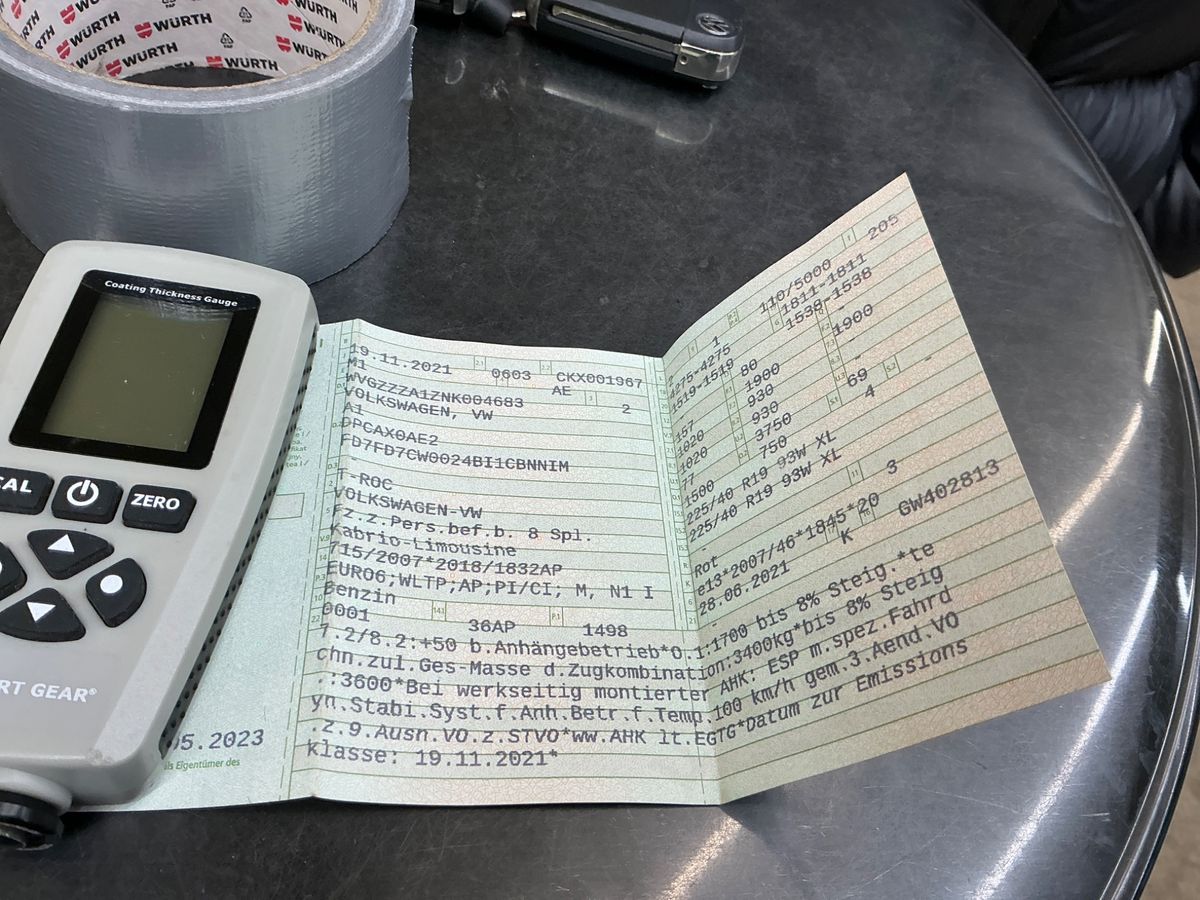 WÜRTH
WÜRTH
WÜRTH
WÜRTH
WÜRTH
WÜRTH
WÜRTH
Coating Thickness Gauge
CAL
ZERO
RT GEAR®
05.2023
als Eigentümer des
19.11.2021 0603 CKX001967
M1 AE 2
WVGZZZA1ZNK004683
VOLKSWAGEN, VW
A1
DPCAX0AE2
FD7FD7CW0024BI1CBNNIM
T-ROC
VOLKSWAGEN-VW
Fz.z.Pers.bef.b. 8 Spl.
Kabrio-Limousine
715/2007*2018/1832AP
EURO6;WLTP;AP;PI/CI; M, N1 I
Benzin
0001 36AP 1498
1 110/5000 205
4275-4275 1811-1811
1519-1519 80 1538-1538
157 1900 1900
1020 930 -
1020 930 -
77 3750 69 -
1500 750 4
225/40 R19 93W XL
225/40 R19 93W XL
- 3
Rot
e13*2007/46*1845*20
28.06.2021 K GW402813
7.2/8.2:+50 b.Anhängebetrieb*O.1:1700 bis 8% Steig.*te
chn.zul.Ges-Masse d.Zugkombination:3400kg*bis 8% Steig
.:3600*Bei werkseitig montierter AHK: ESP m.spez.Fahrd
yn.Stabi.Syst.f.Anh.Betr.f.Temp.100 km/h gem.3.Aend.VO
.z.9.Ausn.VO.z.STVO*ww.AHK lt.EGTG*Datum zur Emissions
klasse: 19.11.2021*